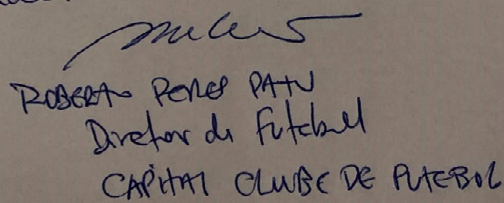 ROBERTO PERES
Diretor de Futebol
CAPITAL CLUBE DE FUTEBOL